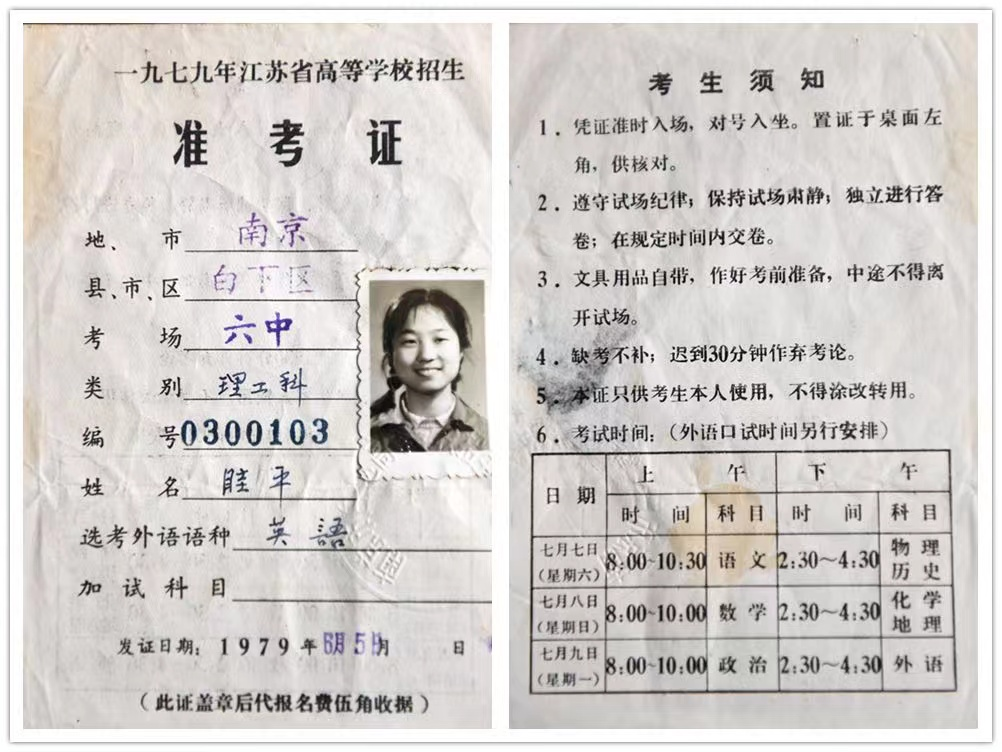 一九七九年江苏省高等学校招生
准考证
地、市 南京
县、市、区 白下区
考场 六中
类别 理工科
编号 0300103
姓名 眭平
选考外语语种 英語
加试科目
发证日期：1979年6月5日月 日
（此证盖章后代报名费伍角收据）
考生须知
1．凭证准时入场，对号入坐。置证于桌面左
角，供核对。
2．遵守试场纪律；保持试场肃静；独立进行答
卷；在规定时间内交卷。
3．文具用品自带，作好考前准备，中途不得离
开试场。
4．缺考不补；迟到30分钟作弃考论。
5．本证只供考生本人使用，不得涂改转用。
6．考试时间：（外语口试时间另行安排）
日期 上午 下午
时间 科目 时间 科目
七月七日（星期六） 8:00~10:30 语文 2:30～4:30 物理 历史
七月八日（星期日） 8:00~10:00 数学 2:30～4:30 化学 地理
七月九日（星期一） 8:00~10:00 政治 2:30～4:30 外语